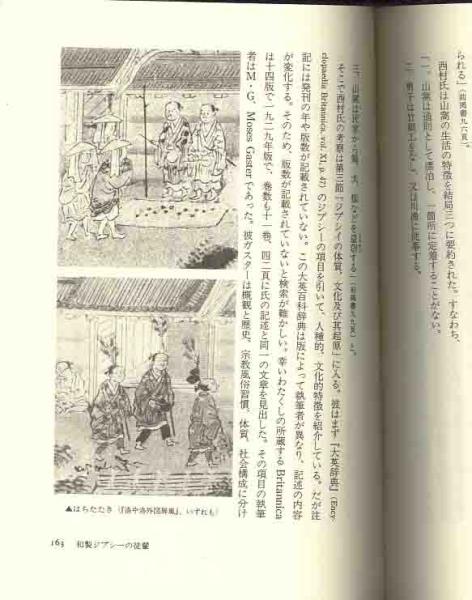 られる」(前掲書九六頁)。
西村氏は山窩の生活の特徴を結局三つに要約された。すなわち、
「一、山窩は通則として漂泊し、一箇所に定着することがない。
二、男子は竹細工をなし、又は川漁に従事する。
三、山窩は民家から鶏、犬、猫などを
する」(前掲書九九頁)と。
そこで西村氏の考察は第三節「ジプシイの体質、文化及び其起原」に入る。彼はまず『大英辞典』(Ency-
clopaedia Britannica, vol. XI, p. 47)のジプシーの項目を引いて、人種的、文化的特徴を紹介している。だが注
記には発刊の年や版数が記載されていない。この大英百科辞典は版によって執筆者が異なり、記述の内容
が変化する。そのため、版数が記載されていないと検索が難かしい。幸いわたくしの所蔵する Britannica
は十四版で一九二九年版で、巻数も十一巻、四二頁に氏の記述と同一の文章を見出した。その項目の執筆
者はM・G、Moses Gaster であった。彼ガスターは概観と歴史、宗教風俗習慣、体質、社会構成に分け
▲はちたたき(『洛中洛外図屏風』、いずれも)
163 和製ジプシーの徒輩